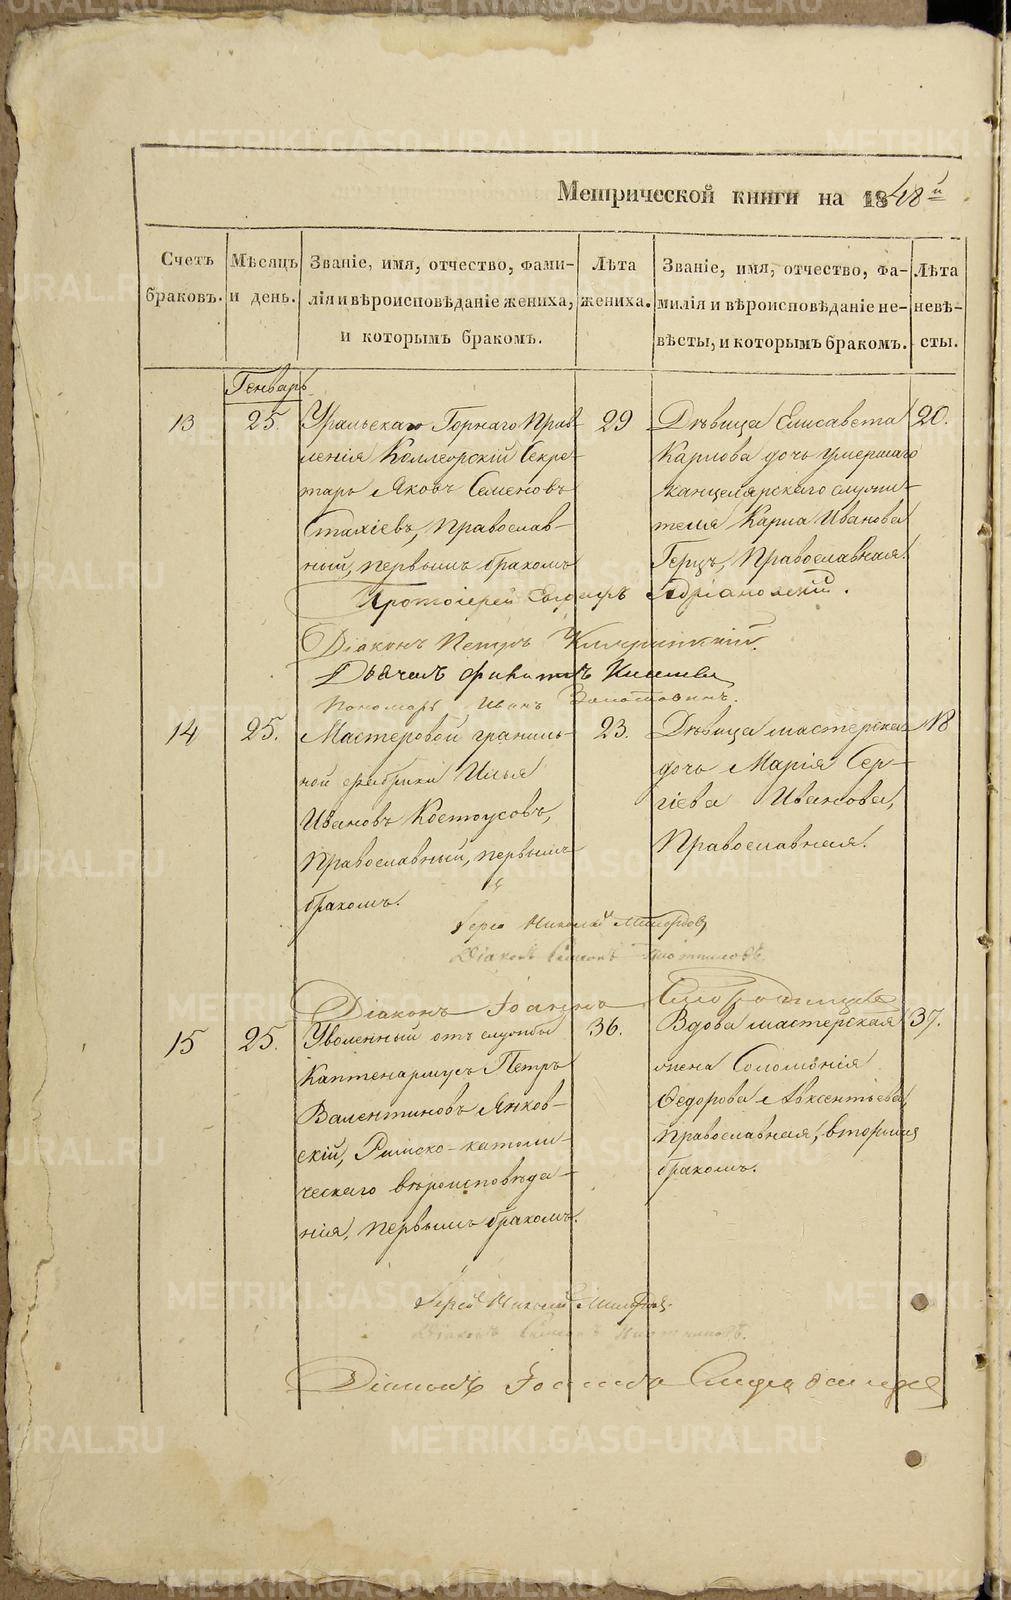 Метрической книги на 1848й
Счетъ браковъ.
Мѣсяцъ и день.
Званіе, имя, отчество, фами-
лія и вѣроисповѣданіе жениха,
и которымъ бракомъ.
Лѣта жениха.
Званіе, имя, отчество, фа-
милія и вѣроисповѣданіе не-
вѣсты, и которымъ бракомъ.
Лѣта невѣ-
сты.
Генварь
13
25.
Уральскаго Горнаго Прав-
ленія Коллегорскій Секре-
тарь Яковъ Семеновъ
Стахіевъ, Православ-
ный, первымъ бракомъ
29
Дѣвица Елисавета
Карлова дочь умершаго
канцелярскаго служи-
теля Карла Иванова
Герцъ, Православная.
20.
Протоіерей Адріановскій.
Діаконъ Петръ
Дьячекъ
Пономарь Иванъ Золотовинъ.
14
25.
Мастеровой граниль-
ной фабрики Илья
Ивановъ Костоусовъ,
Православный, первымъ
бракомъ.
23.
Дѣвица мастерская
дочь Марія Сер-
гіева Иванова,
Православная.
18
Іерей Николай
Діаконъ Симеонъ
Діаконъ Іоаннъ
15
25.
Уволенный отъ службы
Каптенармусъ Петръ
Валентиновъ Янков-
скій, Римско-католи-
ческаго вѣроисповѣда-
нія, первымъ бракомъ.
36.
Вдова мастерская
жена Соломонія
Ѳедорова Авксентьева,
православная, вторымъ
бракомъ.
37.
Іерей Николай
Діаконъ Симеонъ
Діаконъ Іоаннъ
METRIKI.GASO-URAL.RU